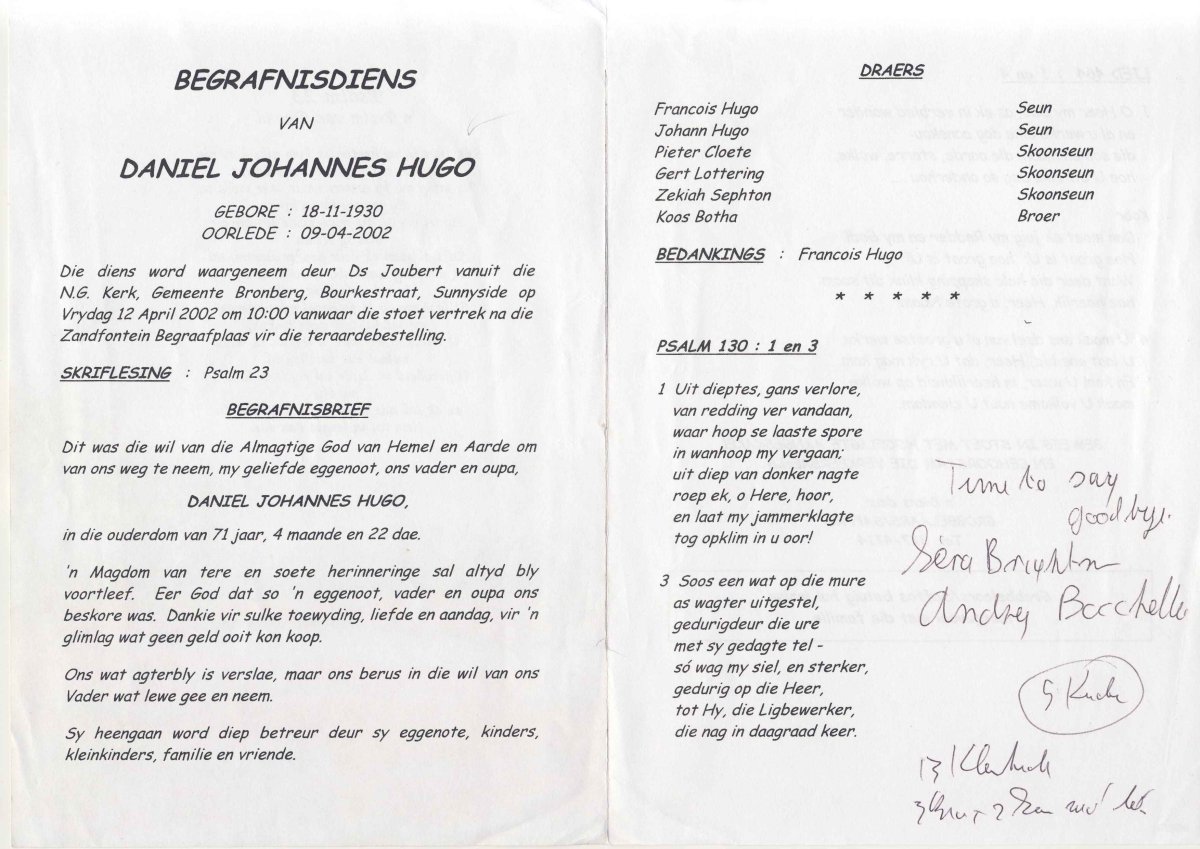 BEGRAFNISDIENS
VAN
DANIEL JOHANNES HUGO
GEBORE : 18-11-1930
OORLEDE : 09-04-2002
Die diens word waargeneem deur Ds Joubert vanuit die
N.G. Kerk, Gemeente Bronberg, Bourkestraat, Sunnyside op
Vrydag 12 April 2002 om 10:00 vanwaar die stoet vertrek na die
Zandfontein Begraafplaas vir die teraardebestelling.
SKRIFLESING : Psalm 23
BEGRAFNISBRIEF
Dit was die wil van die Almagtige God van Hemel en Aarde om
van ons weg te neem, my geliefde eggenoot, ons vader en oupa,
DANIEL JOHANNES HUGO,
in die ouderdom van 71 jaar, 4 maande en 22 dae.
'n Magdom van tere en soete herinneringe sal altyd bly
voortleef. Eer God dat so 'n eggenoot, vader en oupa ons
beskore was. Dankie vir sulke toewyding, liefde en aandag, vir 'n
glimlag wat geen geld ooit kon koop.
Ons wat agterbly is verslae, maar ons berus in die wil van ons
Vader wat lewe gee en neem.
Sy heengaan word diep betreur deur sy eggenote, kinders,
kleinkinders, familie en vriende.
DRAERS
Francois Hugo Seun
Johann Hugo Seun
Pieter Cloete Skoonseun
Gert Lottering Skoonseun
Zekiah Sephton Skoonseun
Koos Botha Broer
BEDANKINGS : Francois Hugo
* * * * *
PSALM 130 : 1 en 3
1 Uit dieptes, gans verlore,
van redding ver vandaan,
waar hoop se laaste spore
in wanhoop my vergaan;
uit diep van donker nagte
roep ek, o Here, hoor,
en laat my jammerklagte
tog opklim in u oor!
3 Soos een wat op die mure
as wagter uitgestel,
gedurigdeur die ure
met sy gedagte tel -
só wag my siel, en sterker,
gedurig op die Heer,
tot Hy, die Ligbewerker,
die nag in daagraad keer.
Time to say
goodbye.
Sera Brighton
Andrey Bocchelle